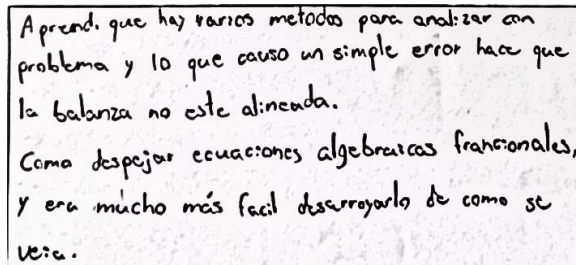 Aprendi que hay varios metodos para analizar con
problema y lo que causo un simple error hace que
la balanza no este alineada.
Como despejar ecuaciones algebraicas francionales,
y era mucho más facil desarroyarlo de como se
veia.